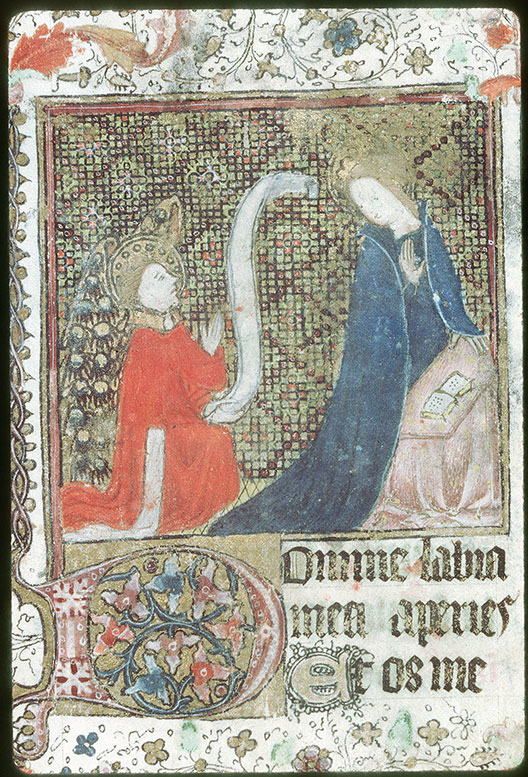 DOmine labia
mea aperies
Et os me